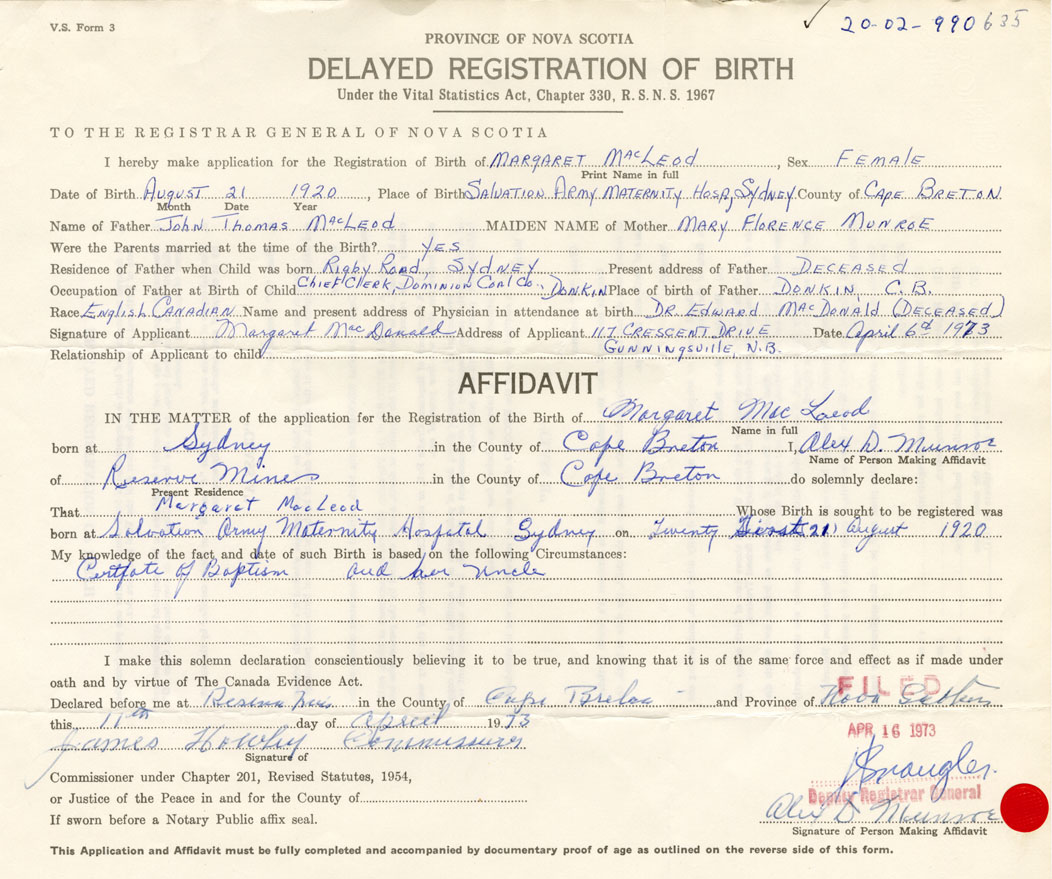 V.S. Form 3
✓ 20-02-990635
PROVINCE OF NOVA SCOTIA
DELAYED REGISTRATION OF BIRTH
Under the Vital Statistics Act, Chapter 330, R. S. N. S. 1967
TO THE REGISTRAR GENERAL OF NOVA SCOTIA
I hereby make application for the Registration of Birth of MARGARET MACLEOD, Sex FEMALE
Print Name in full
Date of Birth AUGUST 21 1920, Place of Birth SALVATION ARMY MATERNITY HOSP, SYDNEY County of CAPE BRETON
Month Date Year
Name of Father JOHN THOMAS MACLEOD MAIDEN NAME of Mother MARY FLORENCE MUNROE
Were the Parents married at the time of the Birth? YES
Residence of Father when Child was born RIGBY ROAD, SYDNEY Present address of Father DECEASED
Occupation of Father at Birth of Child CHIEF CLERK, DOMINION COAL CO., DONKIN Place of birth of Father DONKIN, C.B.
Race ENGLISH CANADIAN Name and present address of Physician in attendance at birth DR EDWARD MACDONALD (DECEASED)
Signature of Applicant Margaret MacDonald Address of Applicant 117 CRESCENT DRIVE Date April 6th 1973
GUNNINGSVILLE, N.B.
Relationship of Applicant to child
AFFIDAVIT
IN THE MATTER of the application for the Registration of the Birth of Margaret Mac Leod
Name in full
born at Sydney in the County of Cape Breton I, Alex D. Munroe
Name of Person Making Affidavit
of Reserve Mines in the County of Cape Breton do solemnly declare:
Present Residence
That Margaret MacLeod Whose Birth is sought to be registered was
born at Salvation Army Maternity Hospital Sydney on Twenty First 21) August 1920
My knowledge of the fact and date of such Birth is based on the following Circumstances:
Certfate of Baptism and her Uncle
I make this solemn declaration conscientiously believing it to be true, and knowing that it is of the same force and effect as if made under
oath and by virtue of The Canada Evidence Act.
Declared before me at Reserve Mines in the County of Cape Breton and Province of Nova Scotia
FILED
this 11th day of April 1973
APR 16 1973
James Howley Commissioner
Signature of
Commissioner under Chapter 201, Revised Statutes, 1954,
or Justice of the Peace in and for the County of
Deputy Registrar General
If sworn before a Notary Public affix seal.
Alex D Munroe
Signature of Person Making Affidavit
This Application and Affidavit must be fully completed and accompanied by documentary proof of age as outlined on the reverse side of this form.